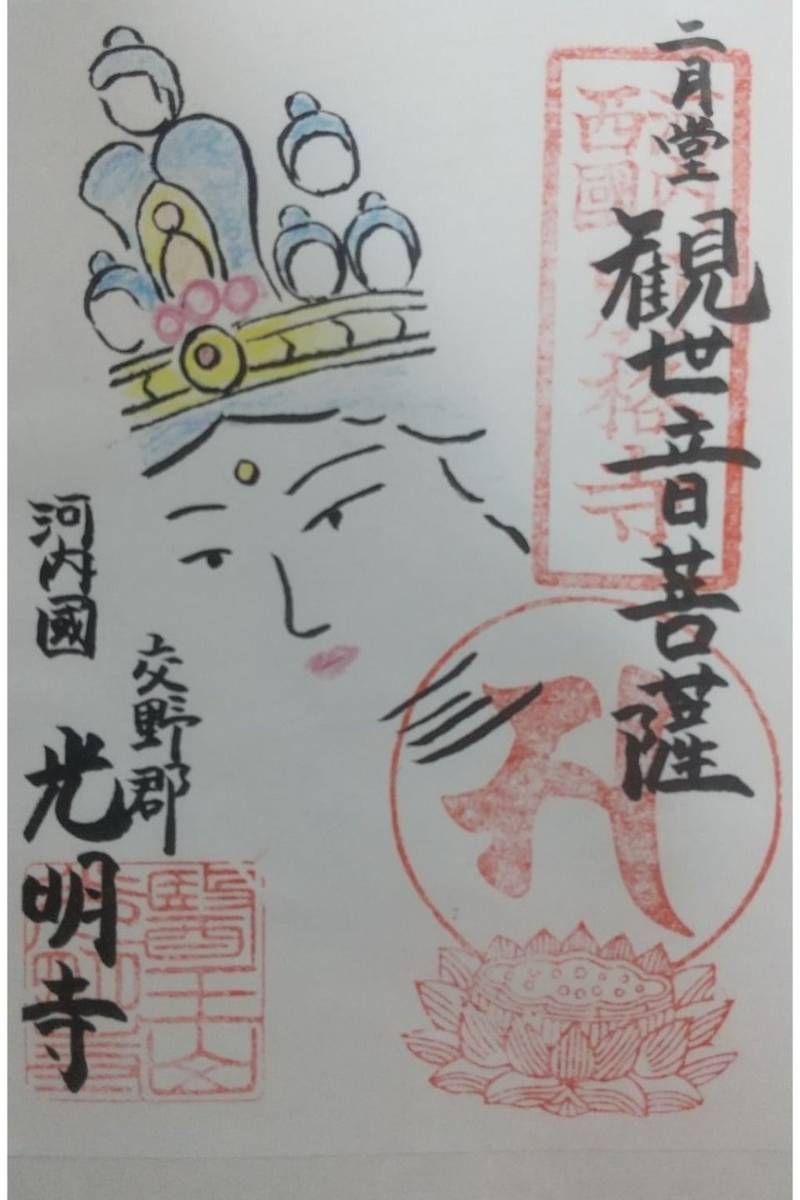 二月堂
観世音菩薩
西國
交野郡
河内國
光明寺
醫王山